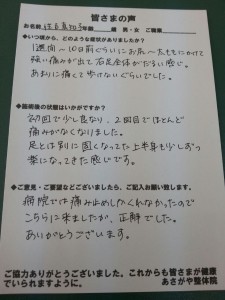 皆さまの声
お名前 年齢 歳 男・女 ご職業
◆いつ頃から、どのような症状がありましたか？
1週間〜10日前ぐらいにお尻〜太ももにかけて
強い痛みが出て右足全体がだるい感じ。
あまりに痛くて歩けないぐらいでした。
◆施術後の状態はいかがですか？
初回で少し良くなり、2回目でほとんど
痛みがなくなりました。
足とは別に固くなってた上半身も少しずつ
楽になってきた感じです。
◆ご意見・ご要望などございましたら、ご記入お願い致します。
病院では痛み止めしかくれなかったので
こちらに来ましたが、正解でした。
ありがとうございます。
ご協力ありがとうございました。これからも皆さまが健康
でいられますように。 あさがや整体院